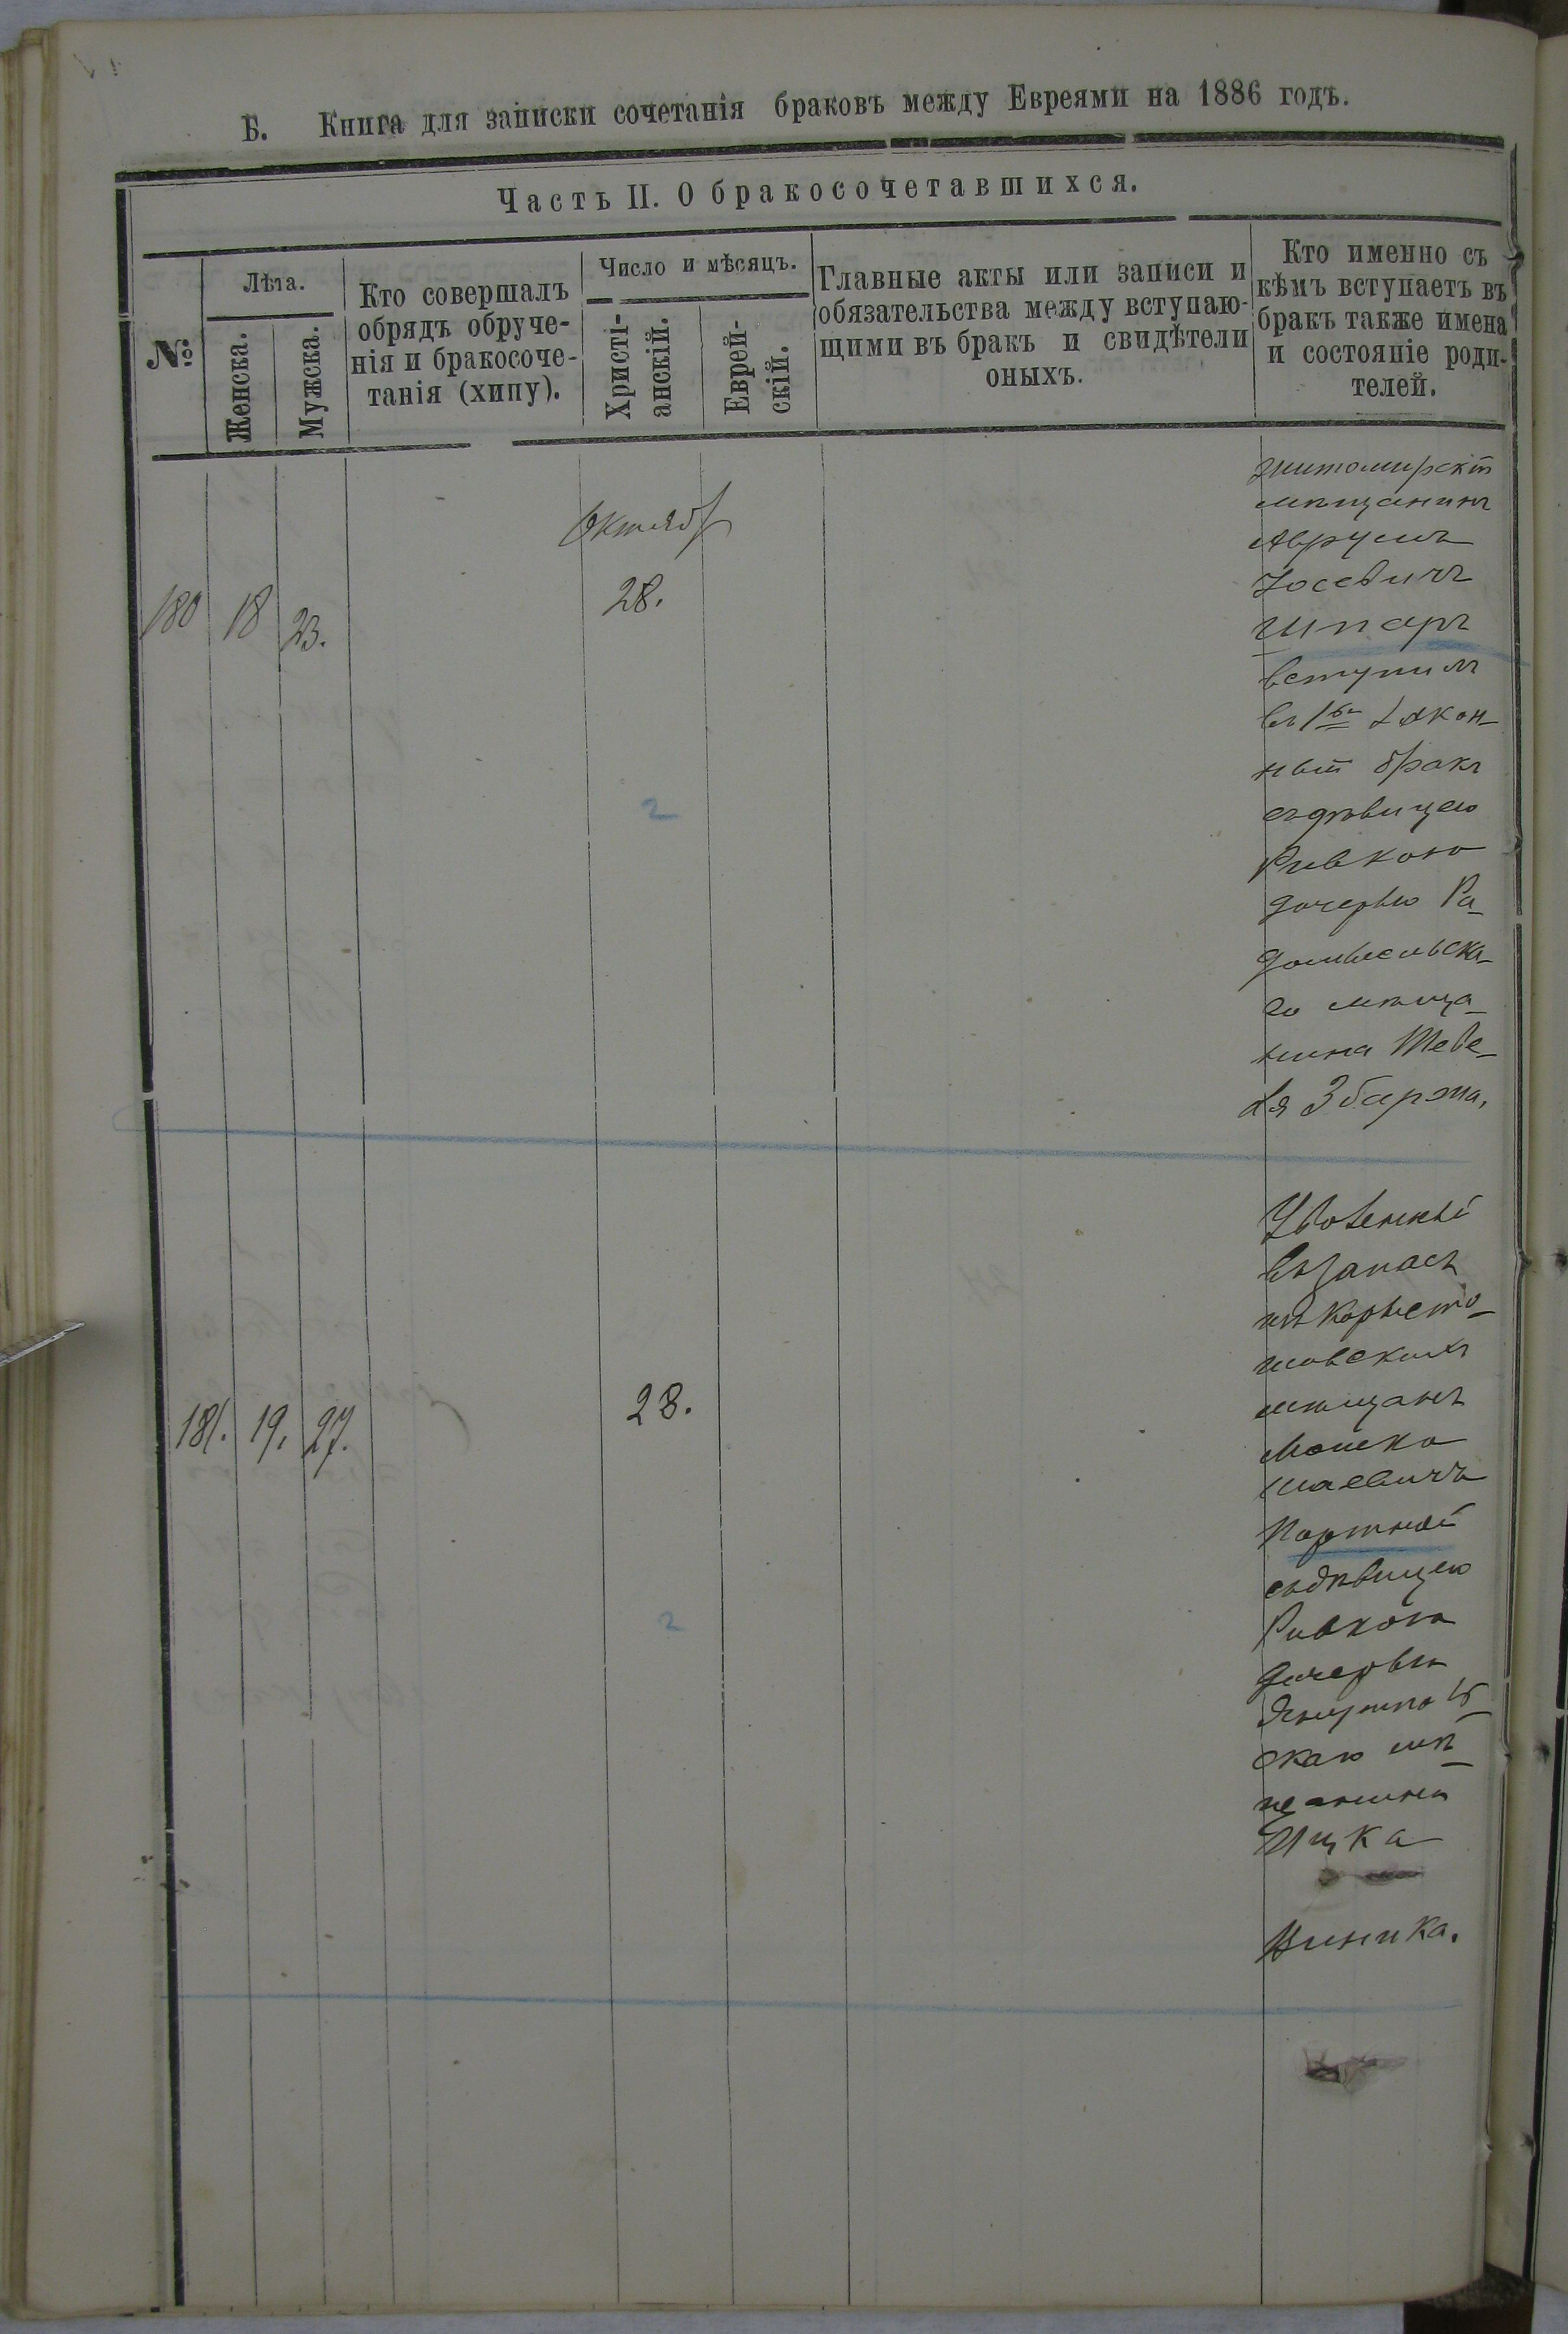 Б. Книга для записки сочетанія браковъ между Евреями на 1886 годъ.
Часть II. О бракосочетавшихся.
№
Лѣта.
Женска.
Мужска.
Кто совершалъ
обрядъ обруче-
нія и бракосоче-
танія (хипу).
Число и мѣсяцъ.
Христі-
анскій.
Еврей-
скій.
Главные акты или записи и
обязательства между вступаю-
щими въ бракъ и свидѣтели
оныхъ.
Кто именно съ
кѣмъ вступаетъ въ
бракъ также имена
и состояніе роди-
телей.
Октябр
180 18 23. 28.
Житомирскій
мѣщанинъ
Аврумъ
Іосевичъ
Шпаръ
вступилъ
въ 1й закон-
ный бракъ
съ дѣвицею
Ривкою
дочерью Ра-
домысльска-
го мѣща-
нина Теве-
ля Збаржа,
2
181. 19. 27. 28.
Уволенный
въ запасъ
изъ Коросты-
шовскихъ
мѣщанъ
Мошко
Шаевичъ
Портной
съ дѣвицею
Ривкою
дочерью
скаго мѣ-
щанина
Ицка
2